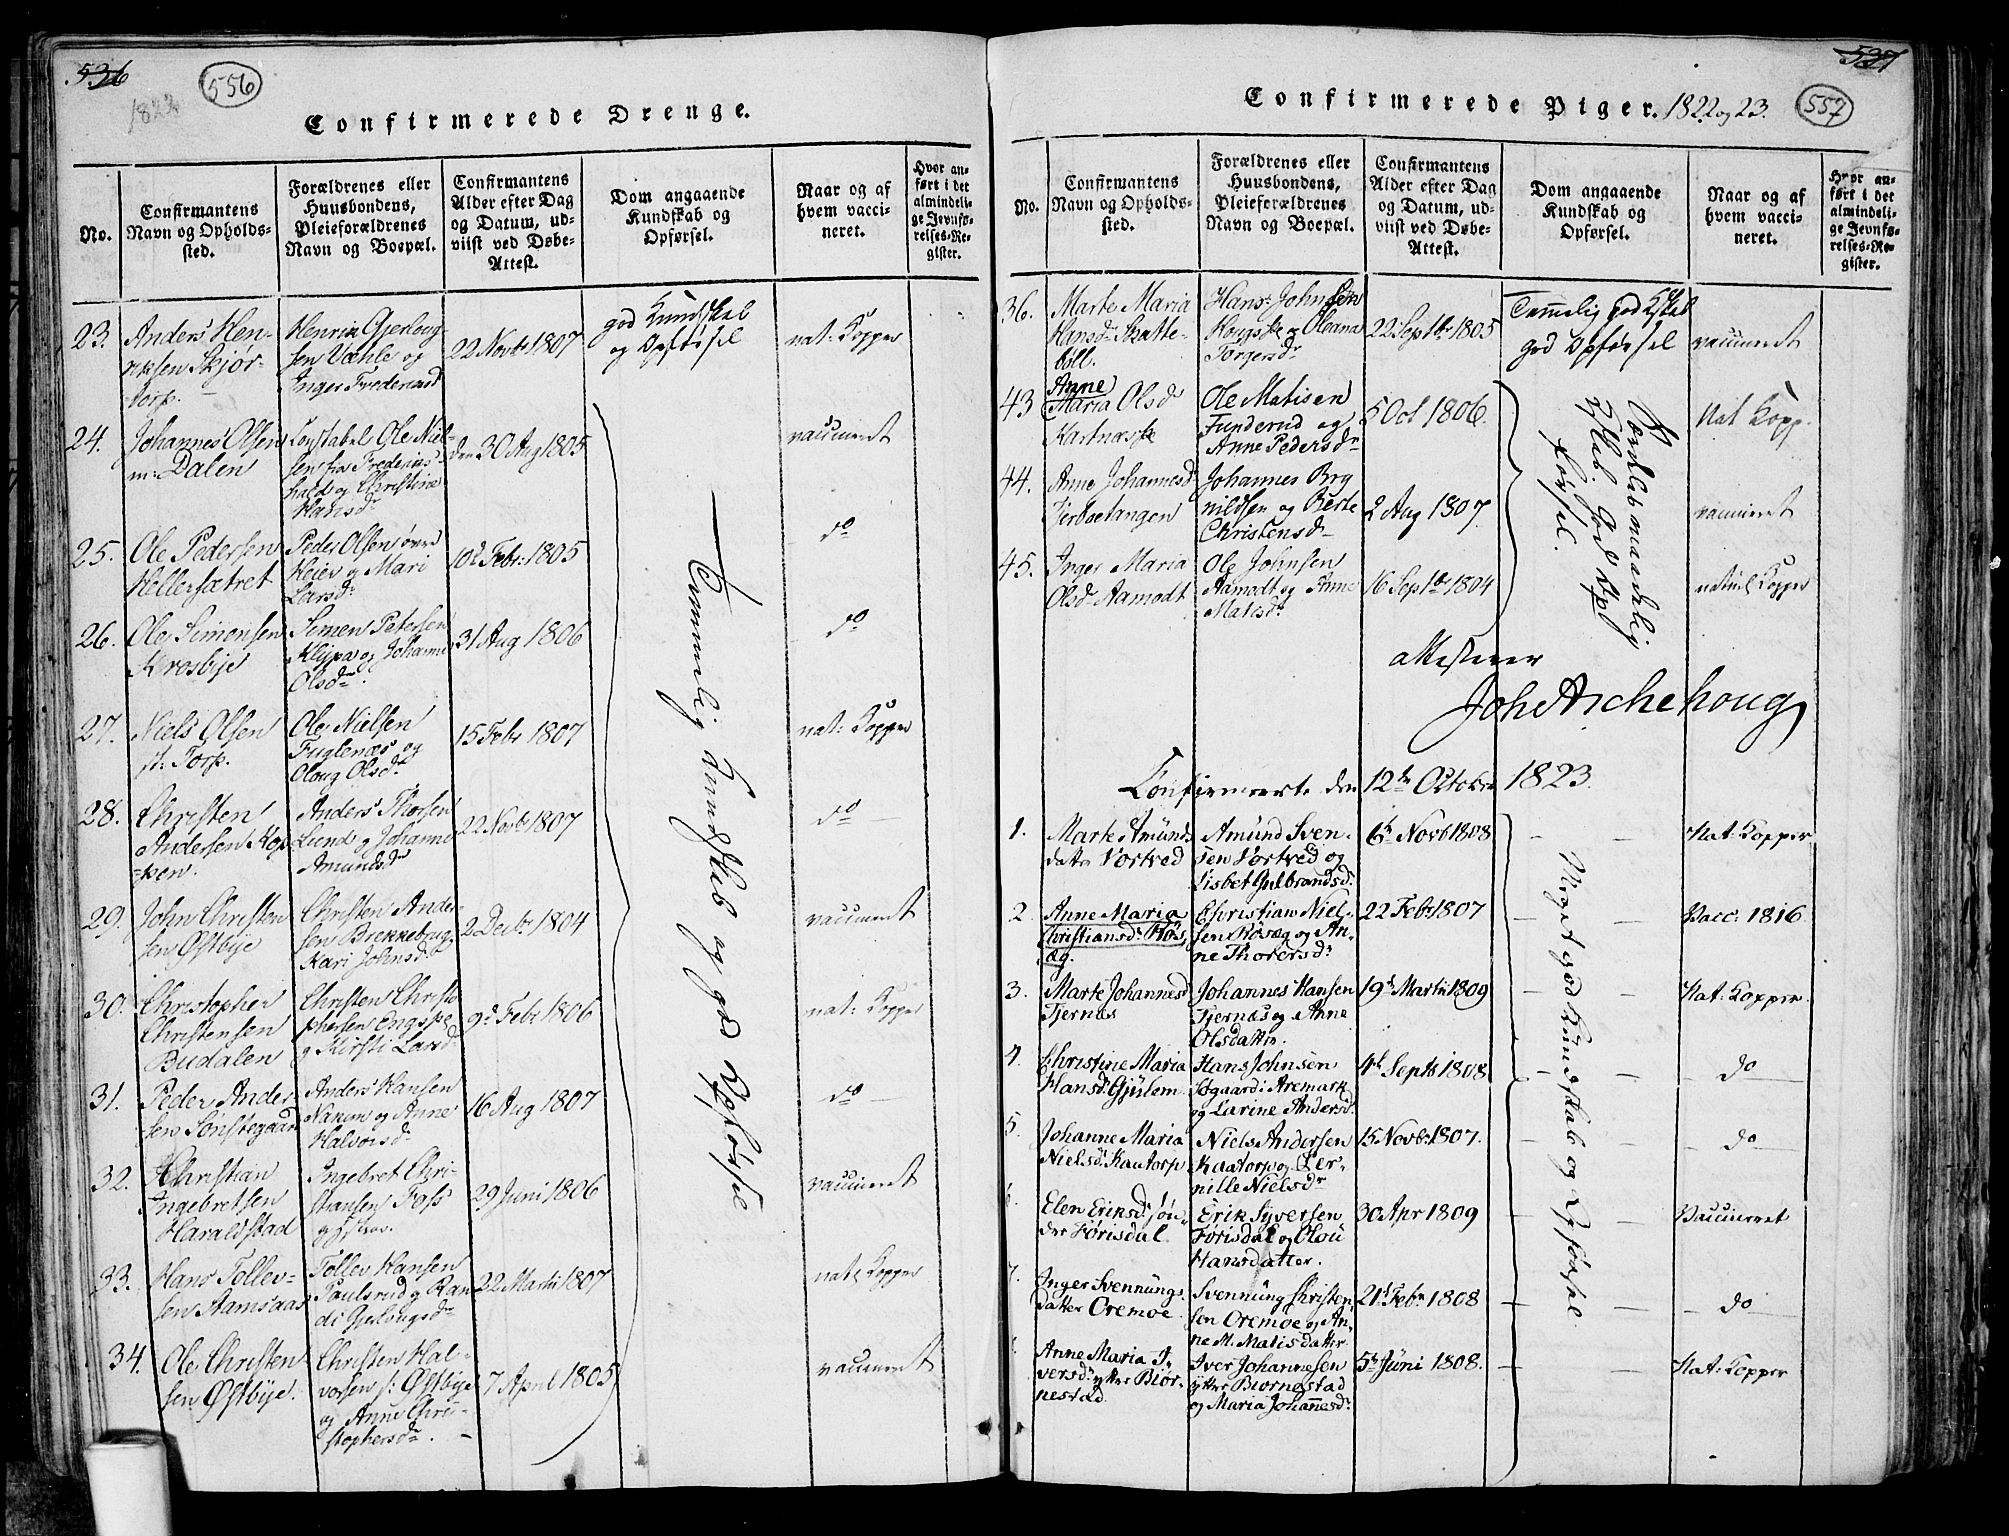 536
556
1822
Confirmerede Drenge.
No.
Confirmantens
Navn og Opholds-
sted.
Forældrenes eller
Huusbondens,
Pleieforældrenes
Navn og Boepæl.
Confirmantens
Alder efter Dag
og Datum, ud-
viist ved Døbe-
Attest.
Dom angaaende
Kundskab og
Opførsel.
Naar og af
hvem vacci-
neret.
Hvor an-
ført i det
almindeli-
ge Jevnfø-
relses-Re-
gister.
23.
Anders Hen-
riksen Skjør-
torp.
Henrik Gjerloug-
sen Væhle og
Inger Fredriksd
22 Novb 1807
god Kundskab
og Opførsel
nat: Kopper
24.
Johannes Olsen
m: Dalen
Constabel Ole Niel-
sen fra Friderics-
hald og Christine
Hansd
den 30 Aug 1805
vaccineret
25.
Ole Pedersen
Hellesætret
Peder Olsen øvre
Heier og Mari
Larsd
10d Febr: 1805
do
26.
Ole Simonsen
Krosbye
Simen Petersen
Klypa og Johanne
Olsdr
31 Aug 1806
do
27.
Niels Olsen
st: Torp.
Ole Nielsen
Fuglenæs og
Oloug Olsdr
15 Febr 1807
nat: Kopper
28.
Christen
Andersen Kop-
pen.
Anders Thorsen
Lund og Johanne
Amundsdr
22 Novb 1807
do
29.
John Christen
sen Østbye
Christen Ander-
sen Brekkebrug
Kari Johnsd
2 Decbr 1804
vaccineret
30.
Christopher
Christensen
Budalen
Christen Christo
phersen Engspe
og Kirsti Larsd
9d Febr 1806
nat: Kopper
31.
Peder Ander
sen Sonstegaard
Anders Hansen
og Anne
Halvorsdr
16 Aug 1807
do
32.
Christian
Ingebretsen
Haraldstad
Ingebret Chri-
stiansen Foss
29 Juni 1806
vaccineret
33.
Hans Tollev-
sen Aamsaas
Tollev Hansen
Paulsrud og Ran
di Gjerlougsdr
22 Martii 1807
nat: Kopper
34.
Ole Christen
sen Østbye.
Christen Hal-
vorsen s: Østbye
og Anne Chri-
stophersdr.
7 April 1805
vaccineret
Temmelig Kundskab og god Opførsel
537
557
Confirmerede Piger. 1822 og 23.
No.
Confirmantens
Navn og Opholds-
sted.
Forældrenes eller
Huusbondens,
Pleieforældrenes
Navn og Boepæl.
Confirmantens
Alder efter Dag
og Datum, ud-
viist ved Døbe-
Attest.
Dom angaaende
Kundskab og
Opførsel.
Naar og af
hvem vacci-
neret.
Hvor an-
ført i det
almindeli-
ge Jevnfø-
relses-Re-
gister.
36.
Marte Maria
Hansd Skatte-
bøll.
Hans Johnsen
Hougste og Oleana
Torgersdr
22 Septbr 1805
Temmelig god Kskab
god Opførsel
vaccineret
43
Anne
Maria Olsd
Kartnæsse
Ole Matisen
Funderud og
Anne Pedersdr
5 Oct 1806.
Nat Kopp.
44.
Anne Johannesd
Tjerboetangen
Johannes Bry
nildsen og Berte
Christensdr
2 Aug 1807.
vaccineret
45.
Inger Maria
Olsd Aamodt
Ole Johnsen
Aamodt og Anne
Matisdr
16 Septbr 1804
naturl Kopper
maadelig
Kskab. God Op-
førsel.
attesterer
Joh Aschehoug
Confirmerte den 12te October 1823.
1.
Marte Amunds
datter Vortved
Amund Sven-
sen Vortved og
Lisbet Gulbrandsd:
6te Novb 1808
Nat: Kopper
2.
Anne Maria
Christiansd: Røs-
æg.
Christian Niel-
sen Røsæg og An-
ne Thorersdr
22 Feb: 1807
Vacc: 1816
3.
Marte Johannesd
Tjernæs
Johannes Hansen
Tjernæs og Anne
Olsdatter.
19d Martii 1809
Nat: Kopper
4.
Christine Maria
Hansd: Gjølem
Hans Johnsen
Søgaard i Aremark
og Larine Andersd.
4d Septb 1808
do
5.
Johanne Maria
Nielsd: Kaatorp
Niels Andersen
Kaatorp og Per-
nille Nielsdr
15 Novb: 1807.
do
6.
Elen Eriksd: søn-
dre Førisdal.
Erik Syversen
Førisdal og Olou
Hansdatter.
30 Apr 1809
Vaccineret
7.
Inger Svennungs
datter Oremoe
Svennung Christen-
sen Oremoe og An-
ne M. Matisdatter
21d Febr 1808
do
Anne Maria I-
versd: ytter Biør-
nestad.
Iver Johannesen
ytter Biornestad
og Maria Johannesdr.
5te Juni 1808.
Nat: Kopper
Meget god Kundskab og Opførsel